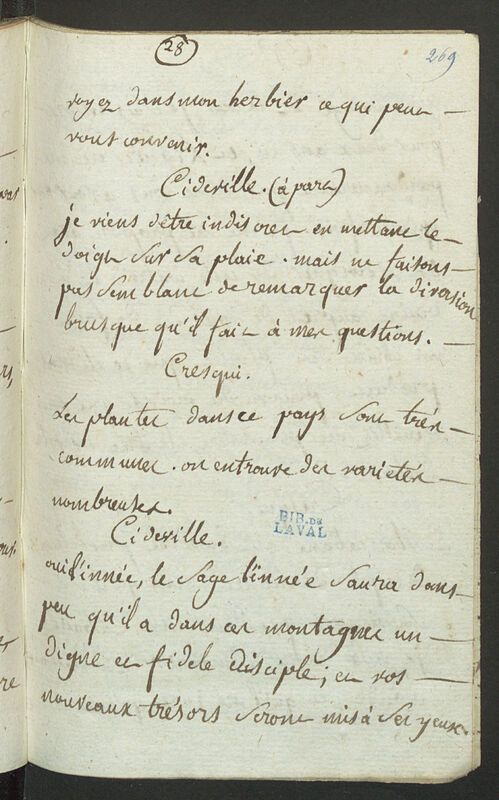 28
269
voyez dans mon herbier ce qui peut
vous convenir.
Cideville. (à part)
je viens d'être indiscret en mettant le
doigt sur sa plaie. mais ne faisons
pas semblant de remarquer la diversion
brusque qu'il fait à mes questions.
Cresqui.
Les plantes dans ce pays sont très
communes. on en trouve des varietés
nombreuses.
Cideville.
BIB. DE
LAVAL
oui l'innée, le sage l'innée saura dans
peu qu'il a dans ces montagnes un
digne et fidele disciple; et vos
nouveaux trésors seront mis à ses yeux